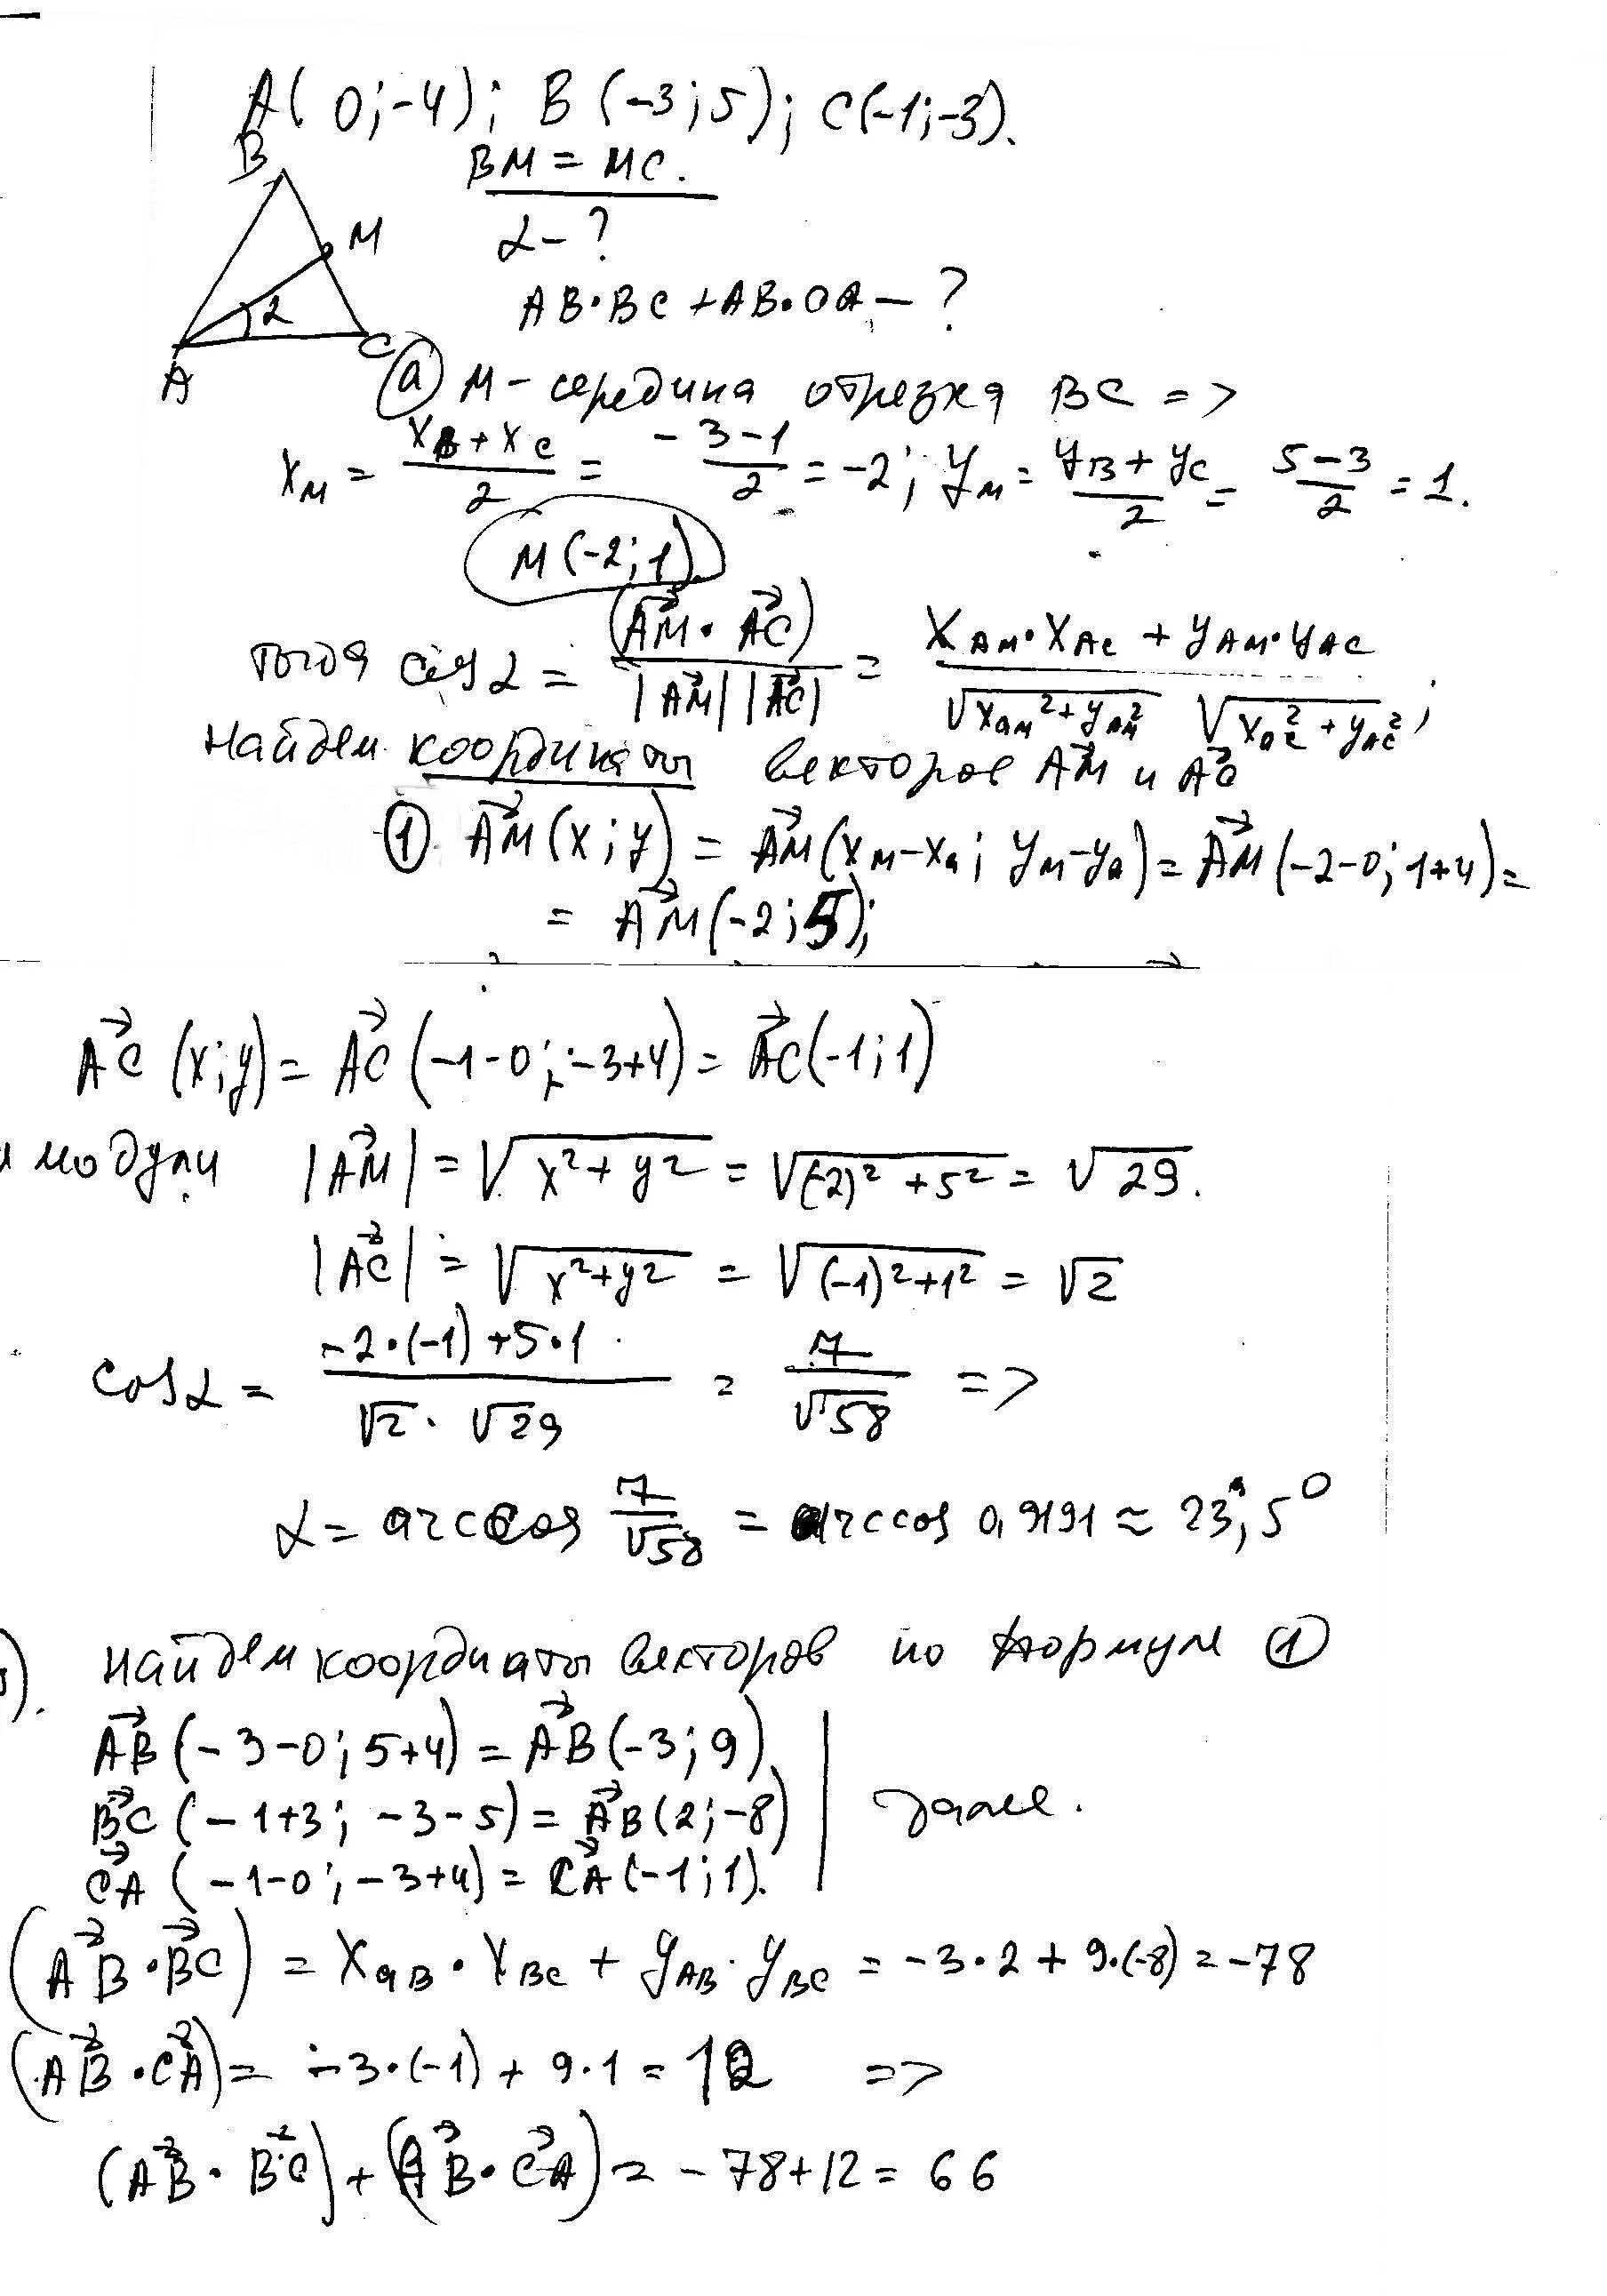 A(0;-4); B(-3;5); C(-1;-3).
B
BM = MC.
M
α-?
AB·BC+AB·CA-?
α
A
C
ⓐ M - середина отрезка BC =>
x_M = (x_B + x_C)/2 = (-3-1)/2 = -2; y_M = (y_B + y_C)/2 = (5-3)/2 = 1.
M(-2;1)
тогда cos α = (AM⃗·AC⃗)/(|AM⃗||AC⃗|) = (x_AM·x_AC + y_AM·y_AC)/(√(x_AM²+y_AM²) √(x_AC²+y_AC²));
Найдем координаты векторов AM⃗ и AC⃗
① AM⃗(x;y) = AM⃗(x_M-x_A; y_M-y_A) = AM⃗(-2-0;1+4) =
= AM⃗(-2;5);
AC⃗(x;y) = AC⃗(-1-0;-3+4) = AC⃗(-1;1)
и модули |AM⃗| = √(x²+y²) = √((-2)²+5²) = √29.
|AC⃗| = √(x²+y²) = √((-1)²+1²) = √2
cos α = (-2·(-1)+5·1)/(√2·√29) = 7/√58 =>
α = arccos 7/√58 = arccos 0,9191 ≈ 23,5°
). Найдем координаты векторов по формуле ①
AB⃗(-3-0;5+4) = AB⃗(-3;9)
BC⃗(-1+3;-3-5) = AB⃗(2;-8)
далее.
CA⃗(-1-0;-3+4) = CA⃗(-1;1).
(AB⃗·BC⃗) = x_AB·x_BC + y_AB·y_BC = -3·2+9·(-8) = -78
(AB⃗·CA⃗) = -3·(-1)+9·1 = 12 =>
(AB⃗·BC⃗)+(AB⃗·CA⃗) = -78+12 = 66